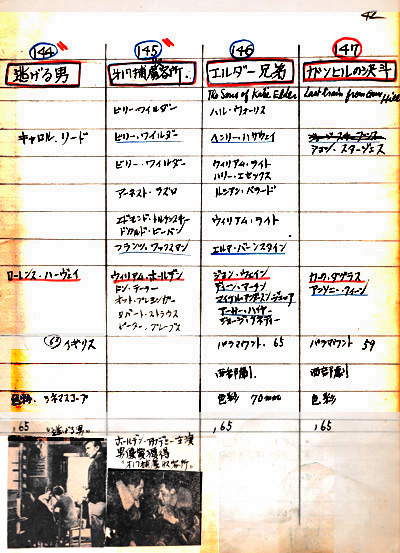 42
144 145 146 147
逃げる男 オ17捕虜収容所. エルダー兄弟 ガンヒルの決斗
The Sons of Katie Elder Last train from Gun Hill
ビリー・ワイルダー ハル・ウォーリス
キャロル・リード ビリー・ワイルダー ヘンリー・ハサウェイ ジョン・スタージェス
ビリー・ワイルダー ウィリアム・ライト
ハリー・エセックス
アーネスト・ラズロ ルシアン・バラード
ウィリアム・ライト
フランツ・ワックスマン エルマ・バーンスタイン
ローレンス・ハーヴェイ ウィリアム・ホールデン ジョン・ウェイン カーク・ダグラス
ドン・テーラー ディーン・マーチン アンソニー・クィーン
オットー・プレミンジャー マイケル・アンダースン・ジュニア
ロバート・ストラウス アール・ハイヤー
ピーター・グレーブス ジョージ・ケネディー
63 イギリス パラマウント. 65 パラマウント 59
西部劇. 西部劇
色彩. シネマスコープ 色彩 70mm 色彩
, 65 "逃げる男" , 65 , 65
ホールデン・アカデミー主演
男優賞獲得
"オ17捕虜収容所"